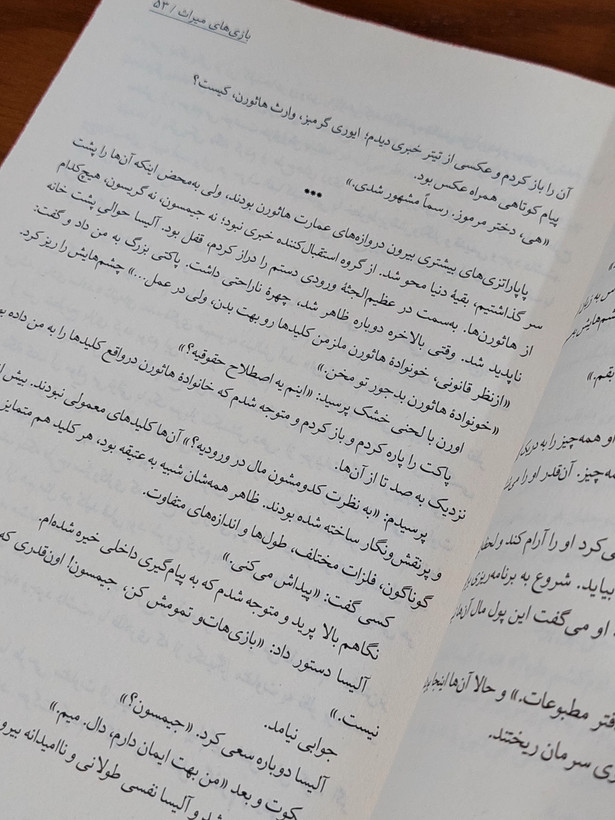 بازی‌های میراث / ۵۳
آن را باز کردم و عکسی از تیتر خبری دیدم: ایوری گرمبز، وارث هاثورن، کیست؟
پیام کوتاهی همراه عکس بود.
«هی، دختر مرموز. رسماً مشهور شدی.»
•••
پاپاراتزی‌های بیشتری بیرون دروازه‌های عمارت هاثورن بودند، ولی به‌محض اینکه آن‌ها را پشت
سر گذاشتیم، بقیهٔ دنیا محو شد. از گروه استقبال‌کننده خبری نبود؛ نه جیمسون، نه گریسون، هیچ‌کدام
از هاثورن‌ها. به‌سمت در عظیم‌الجثهٔ ورودی دستم را دراز کردم، قفل بود. آلیسا حوالی پشت خانه
ناپدید شد. وقتی بالاخره دوباره ظاهر شد، چهرهٔ ناراحتی داشت. پاکتی بزرگ به من داد و گفت:
«ازنظر قانونی، خونوادهٔ هاثورن ملزمن کلیدها رو بهت بدن، ولی در عمل...» چشم‌هایش را ریز کرد.
«خونوادهٔ هاثورن بدجور تو مخن.»
اورن با لحنی خشک پرسید: «اینم یه اصطلاح حقوقیه؟»
پاکت را پاره کردم و باز کردم و متوجه شدم که خانوادهٔ هاثورن درواقع کلیدها را به من داده
نزدیک به صد تا از آن‌ها.
پرسیدم: «به نظرت کدومشون مال در ورودیه؟» آن‌ها کلیدهای معمولی نبودند. بیش از
و پرنقش‌ونگار ساخته شده بودند. ظاهر همه‌شان شبیه به عتیقه بود، هر کلید هم متمایز
گوناگون، فلزات مختلف، طول‌ها و اندازه‌های متفاوت.
کسی گفت: «پیداش می‌کنی.»
نگاهم بالا پرید و متوجه شدم که به پیام‌گیری داخلی خیره شده‌ام.
آلیسا دستور داد: «بازی‌هات‌و تمومش کن، جیمسون! اون‌قدری که
نیست.»
جوابی نیامد.
آلیسا دوباره سعی کرد. «جیمسون؟»
کوت و بعد «من بهت ایمان دارم، دال. میم.»
شد و آلیسا نفسی طولانی و ناامیدانه بیرو
او همه‌چیز را به
مه‌چیز. آن‌قدر او را
ی‌کرد او را آرام کند و
بیاید. شروع به برنامه‌ریزی
او می‌گفت این پول مال
فتر مطبوعات.» و حالا آن‌ها
ری سرمان ریختند.